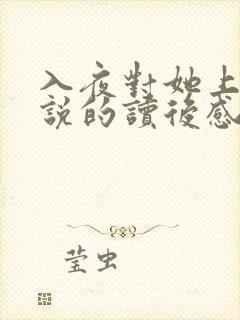 入夜對她上
說的讀後感
莹虫